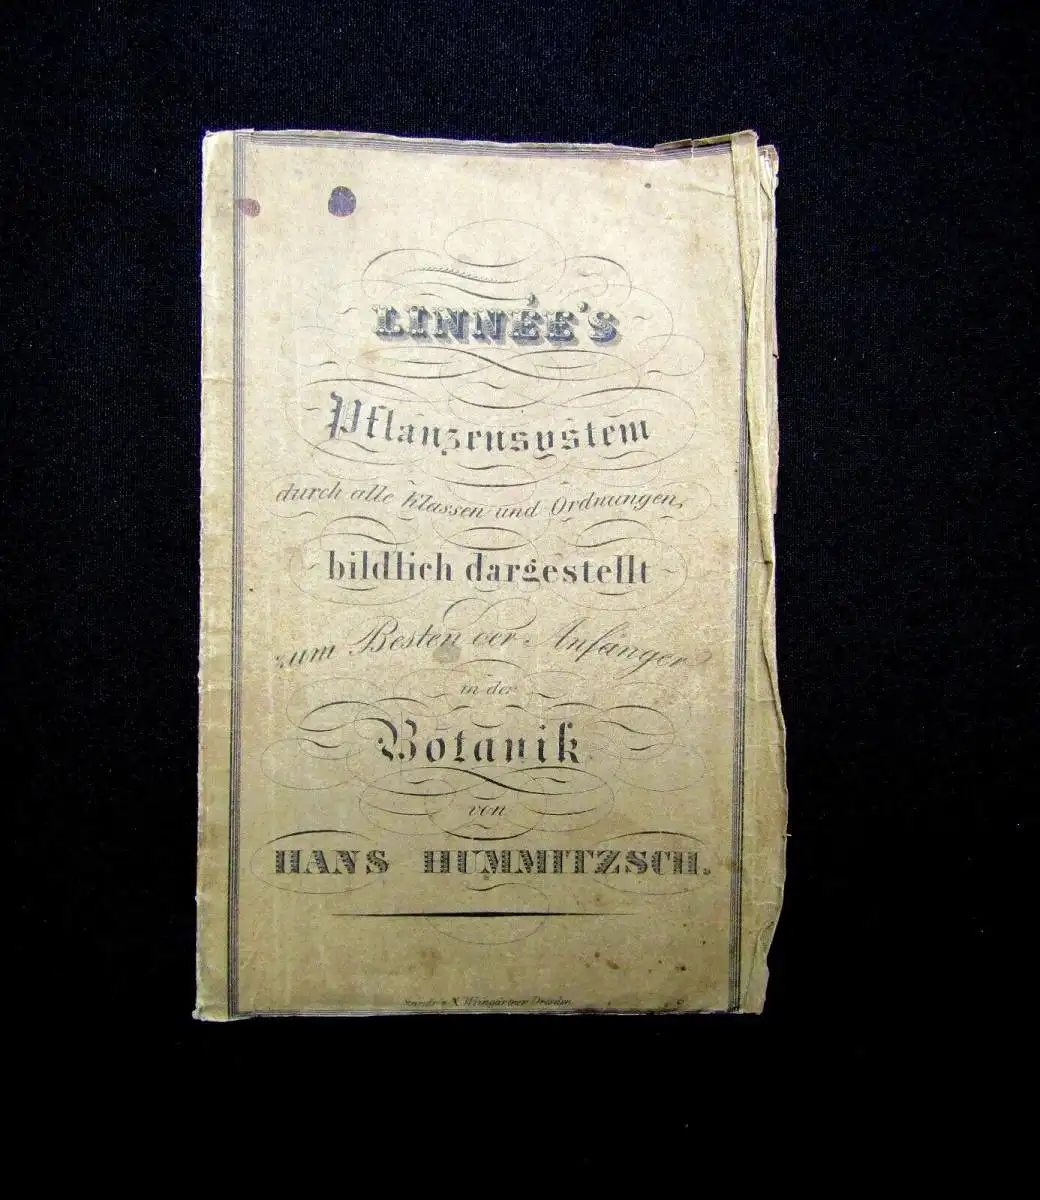 LINNÉE'S
Pflanzensystem
durch alle Klassen und Ordnungen,
bildlich dargestellt
zum Besten der Anfänger
in der
Botanik
von
HANS HUMMITZSCH.
Weingärtner Dresden